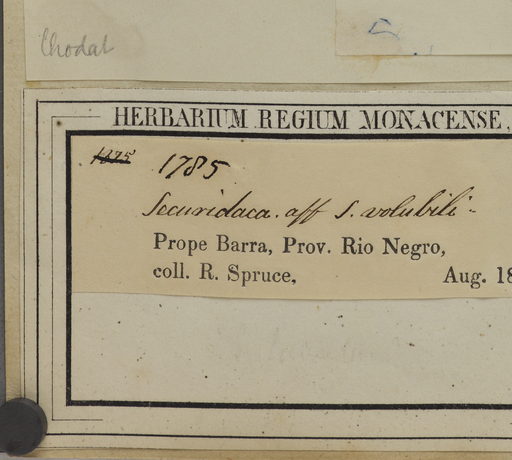 Chodat
HERBARIUM REGIUM MONACENSE.
1875 1785
Securidaca. aff S. volubili-
Prope Barra, Prov. Rio Negro,
coll. R. Spruce, Aug. 18